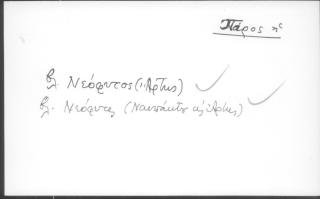 Πάρος
βλ. Νεόφυτος (Άρτης)
βλ. Νεόφυτος (Ναυπάκτου κ' Άρτης)